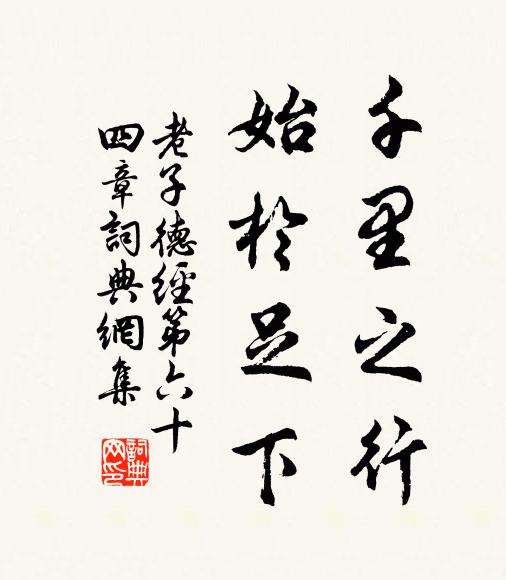 千里之行
始於足下
老子德經第六十
四章詞典網集
詞典網印